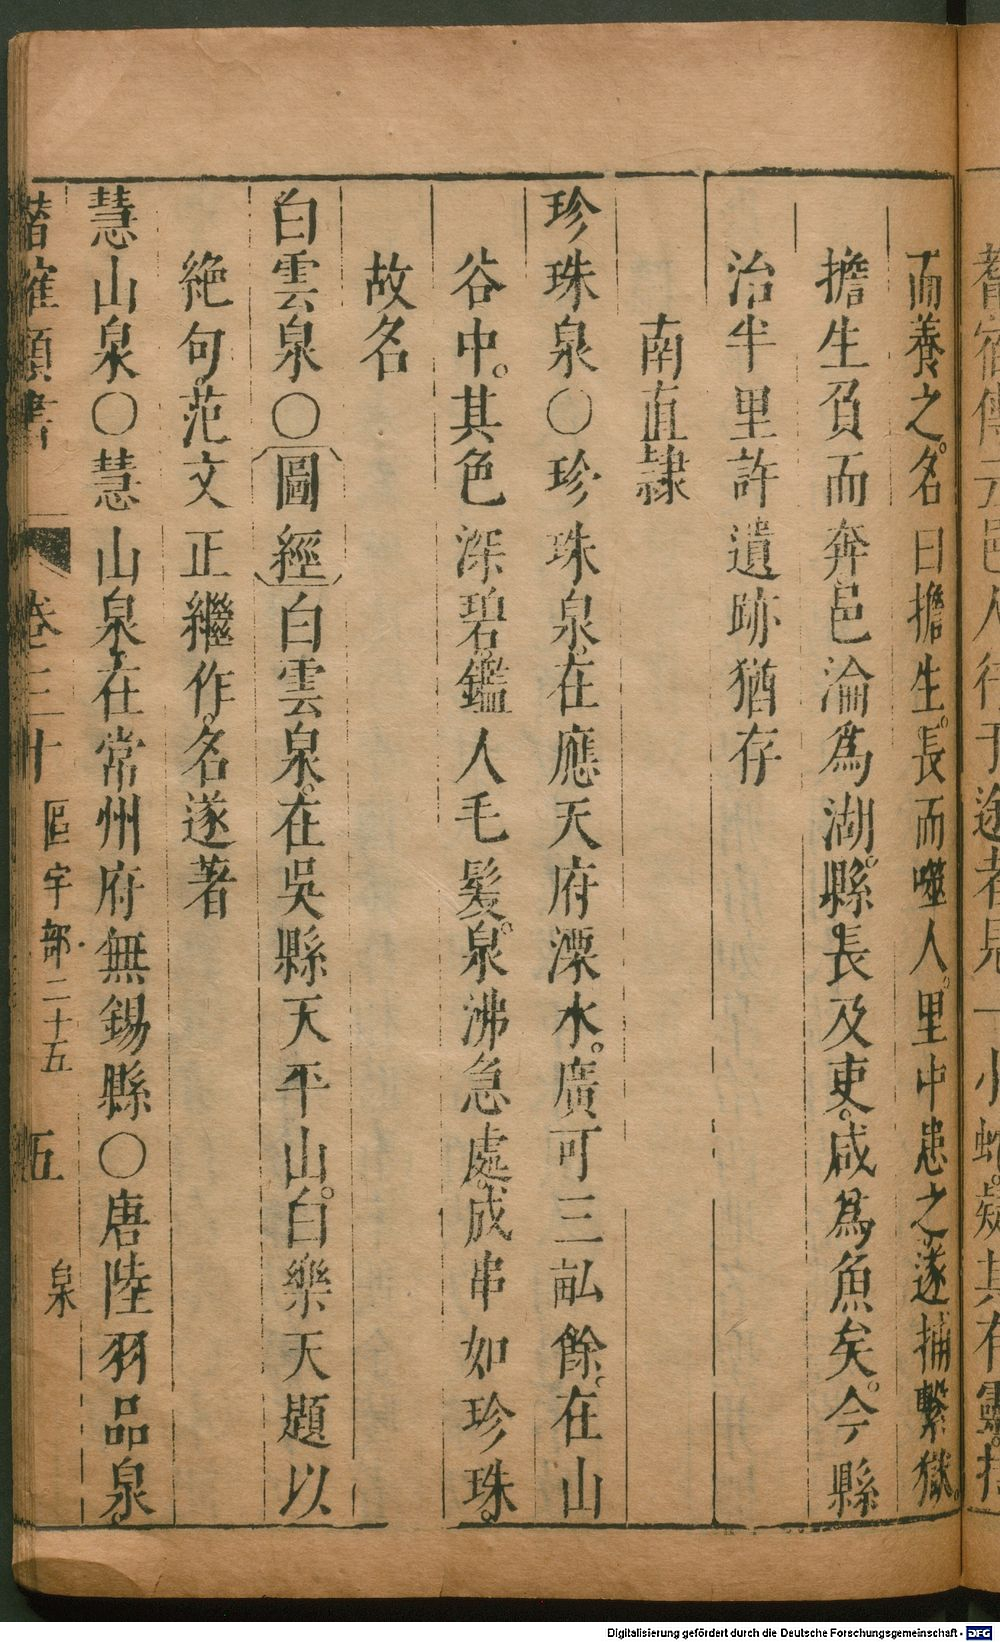 而養之。名曰擔生。長而噬人。里中患之。遂捕繫獄。
擔生負而奔邑淪爲湖。縣長及吏。咸爲魚矣。今縣
治半里許遺跡猶存
南直隸
珍珠泉〇珍珠泉。在應天府溧水。廣可三畝餘。在山
谷中。其色深碧。鑑人毛髮。泉沸急處。成串如珍珠。
故名
白雲泉〇圖經白雲泉。在吳縣天平山。白樂天題以
絶句。范文正繼作。名遂著
慧山泉〇慧山泉。在常州府無錫縣〇唐陸羽品泉。
潛確類書 卷三十 區宇部二十五 五 泉
Digitalisierung gefördert durch die Deutsche Forschungsgemeinschaft - DFG